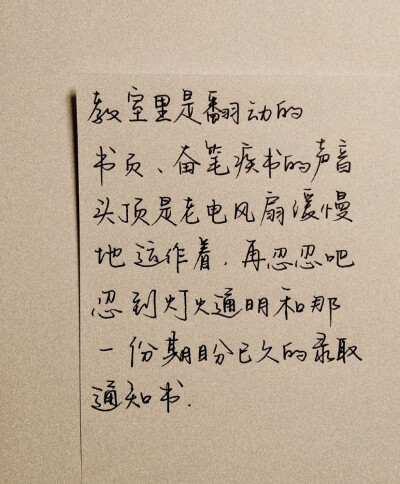 教室里是翻动的
书页、奋笔疾书的声音
头顶是老电风扇缓慢
地运作着.再忍忍吧
忍到灯火通明和那
一份期盼已久的录取
通知书.